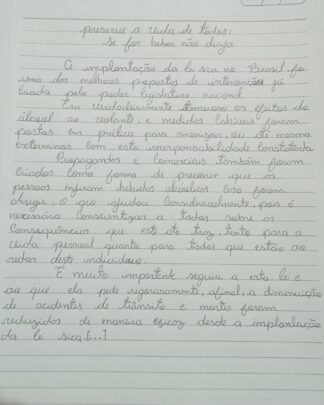 preserve a vida de todos:
se for beber não dirija
A implantação da lei seca no Brasil foi
uma das melhores propostas de intervenção já
criada pelo poder legislativo nacional.
Era verdadeiramente temeroso os efeitos do
álcool ao volante, e medidas cabíveis foram
postas em prática para amenizar, ou até mesmo
exterminar com esta irresponsabilidade constatada
Propagandas e comerciais também foram
criados como forma de prevenir que as
pessoas ingiram bebidas alcoolicas caso forem
dirigir, o que ajudou consideravelmente, pois é
necessário conscientizar a todos sobre as
consequências que este ato traz, tanto para a
vida pessoal quanto para todos que estão ao
redor deste indivíduo.
É muito importante seguir a esta lei e
ao que ela pede rigorosamente, afinal, a diminuição
de acidentes de trânsito e mortes foram
reduzidos de maneira eficaz desde a implantação
da lei seca.[...]